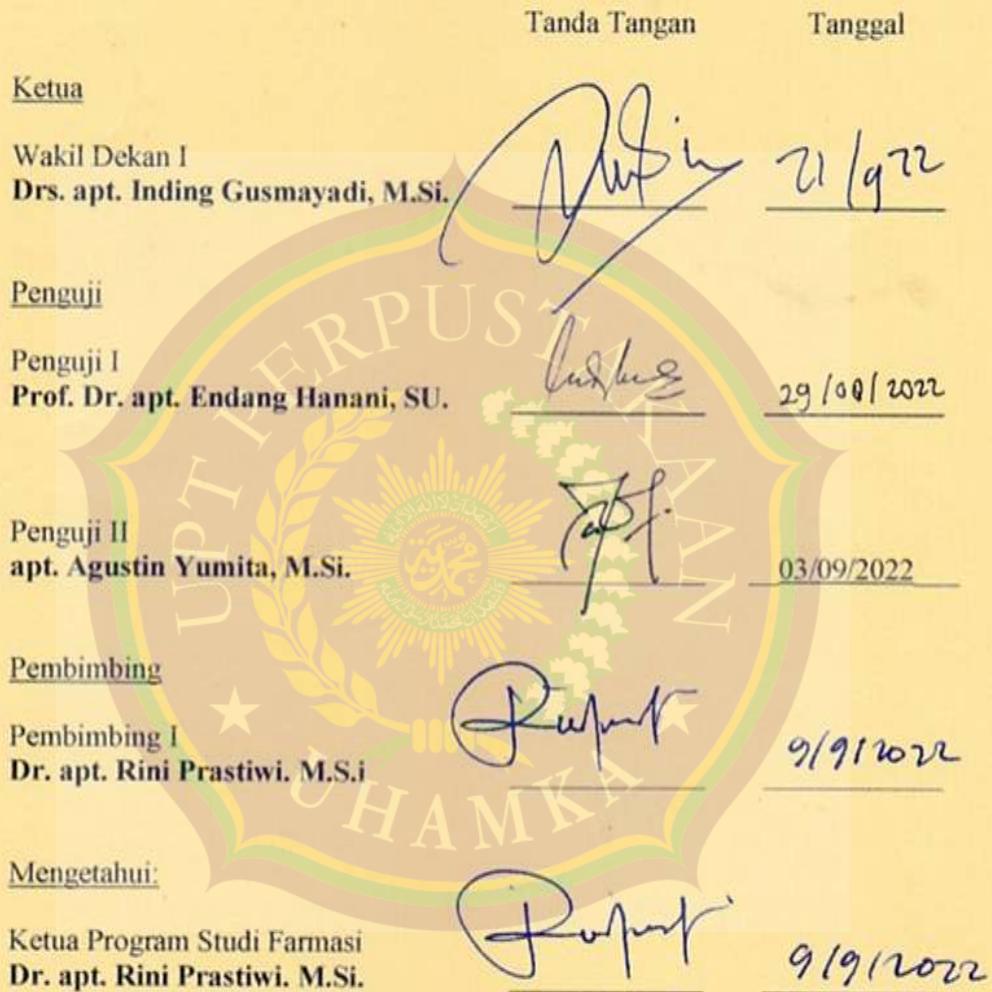 Tanda Tangan Tanggal
Ketua
Wakil Dekan I
Drs. apt. Inding Gusmayadi, M.Si. 21/9 22
Penguji
Penguji I
Prof. Dr. apt. Endang Hanani, SU. 29/08/2022
Penguji II
apt. Agustin Yumita, M.Si. 03/09/2022
Pembimbing
Pembimbing I
Dr. apt. Rini Prastiwi. M.S.i 9/9/2022
Mengetahui:
Ketua Program Studi Farmasi
Dr. apt. Rini Prastiwi. M.Si. 9/9/2022
UPT PERPUSTAKAAN
UHAMKA